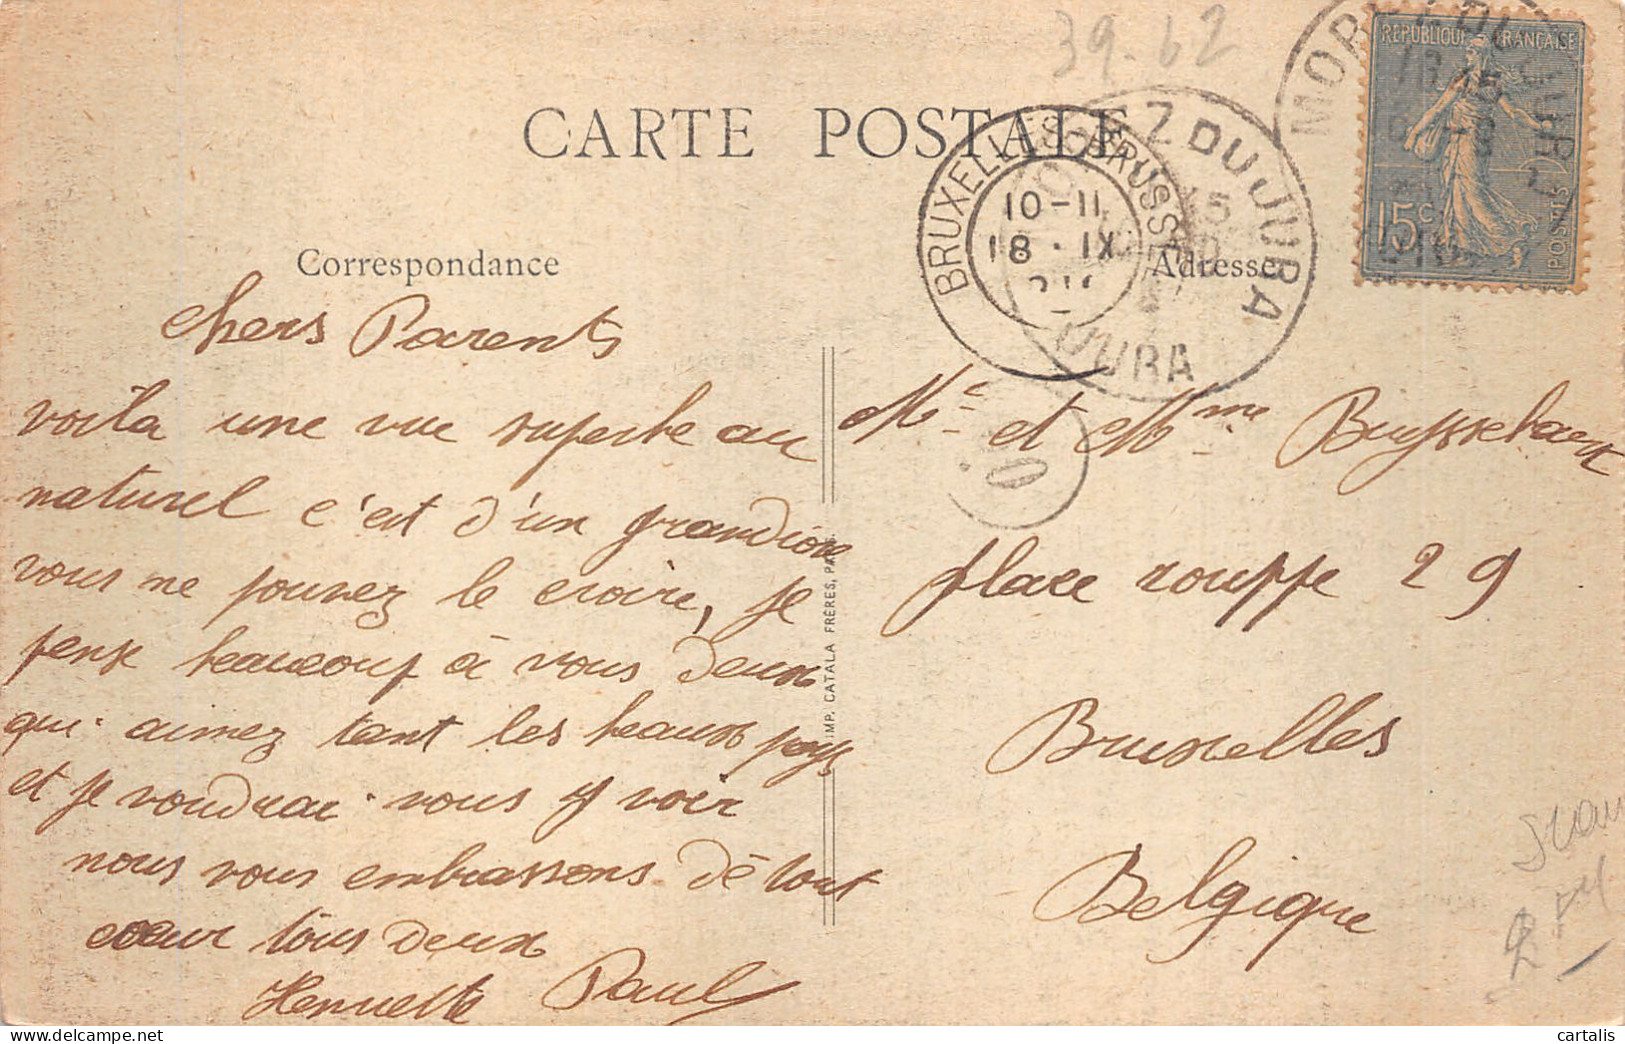 39-62
CARTE POSTALE
MOREZ DU JURA
RÉPUBLIQUE FRANÇAISE
15c
POSTES
BRUXELLES BRUSSEL
10-11
18 · IX
MOREZ DU JURA
JURA
Correspondance
Adresse
chers Parents
voila une vue superbe au
naturel c'est d'un grandiose
vous ne pouvez le croire, je
pense beaucoup à vous deux
qui aimez tant les beaux pays
et je voudrai vous y voir
nous vous embrassons de tout
coeur tous deux
Henriette Paul
IMP. CATALA FRÈRES, PARIS
Mr et Mme Buysselaert
place rouppe 29
Bruxelles
Belgique
cartalis